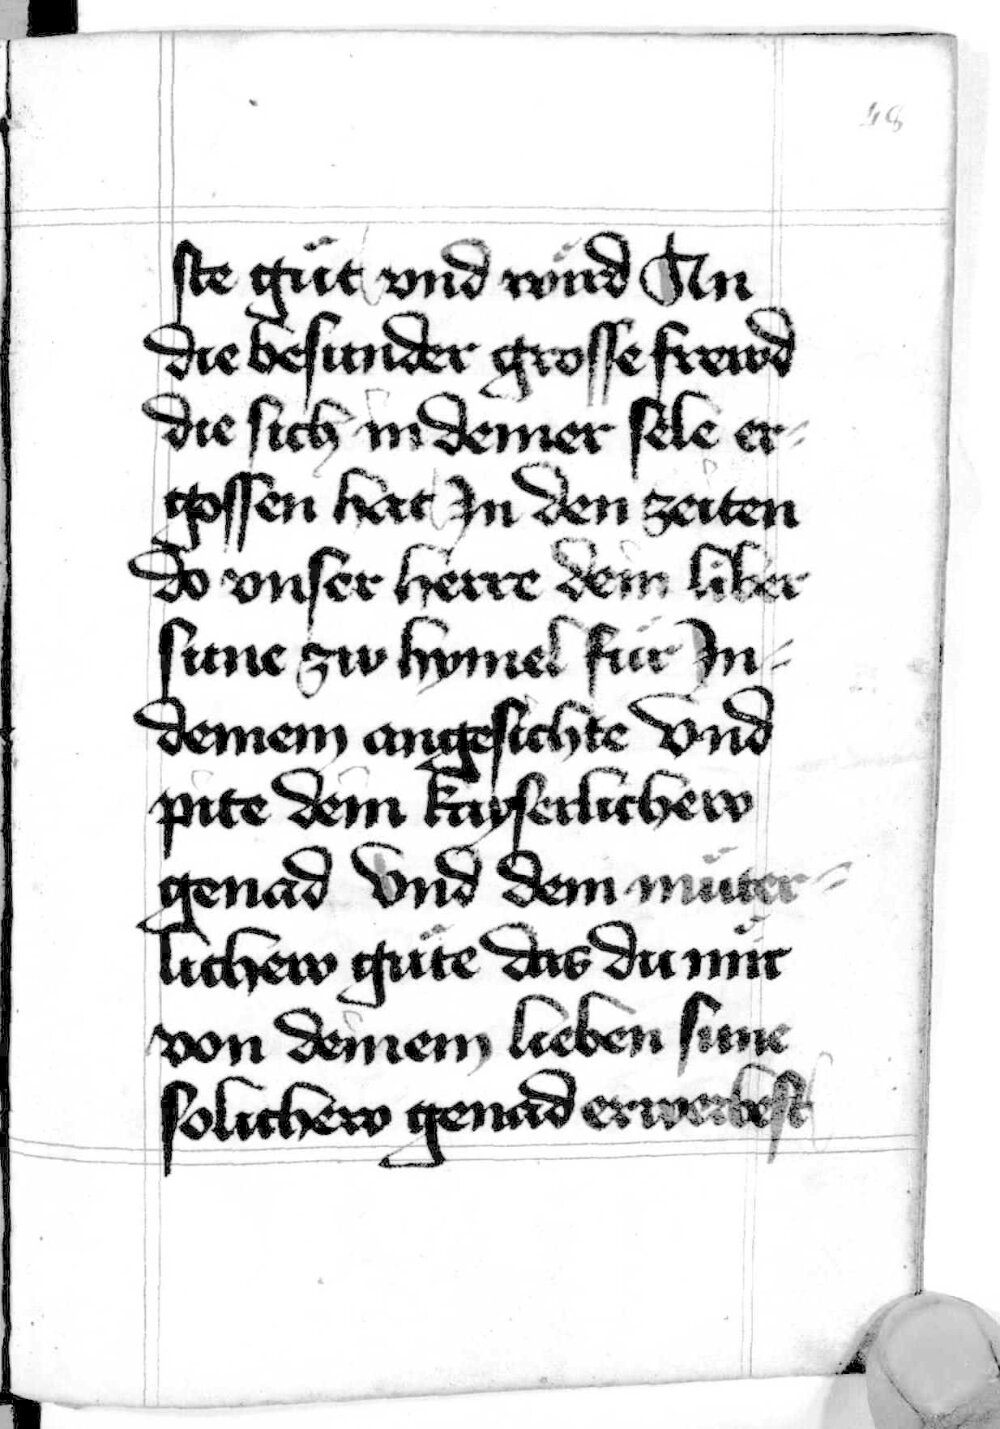 48
ste güt vnd würd An
die besunder grosse frewd
die sich in deiner sele er-
gossen hat In den zeiten
do vnser herre dein liber
sune zw hymel für In-
deinem angesichte Vnd
pite dein kayserlichew
genad Vnd dein müter-
lichew güte das du mir
von deinem lieben sune
solichew genad erwerbest